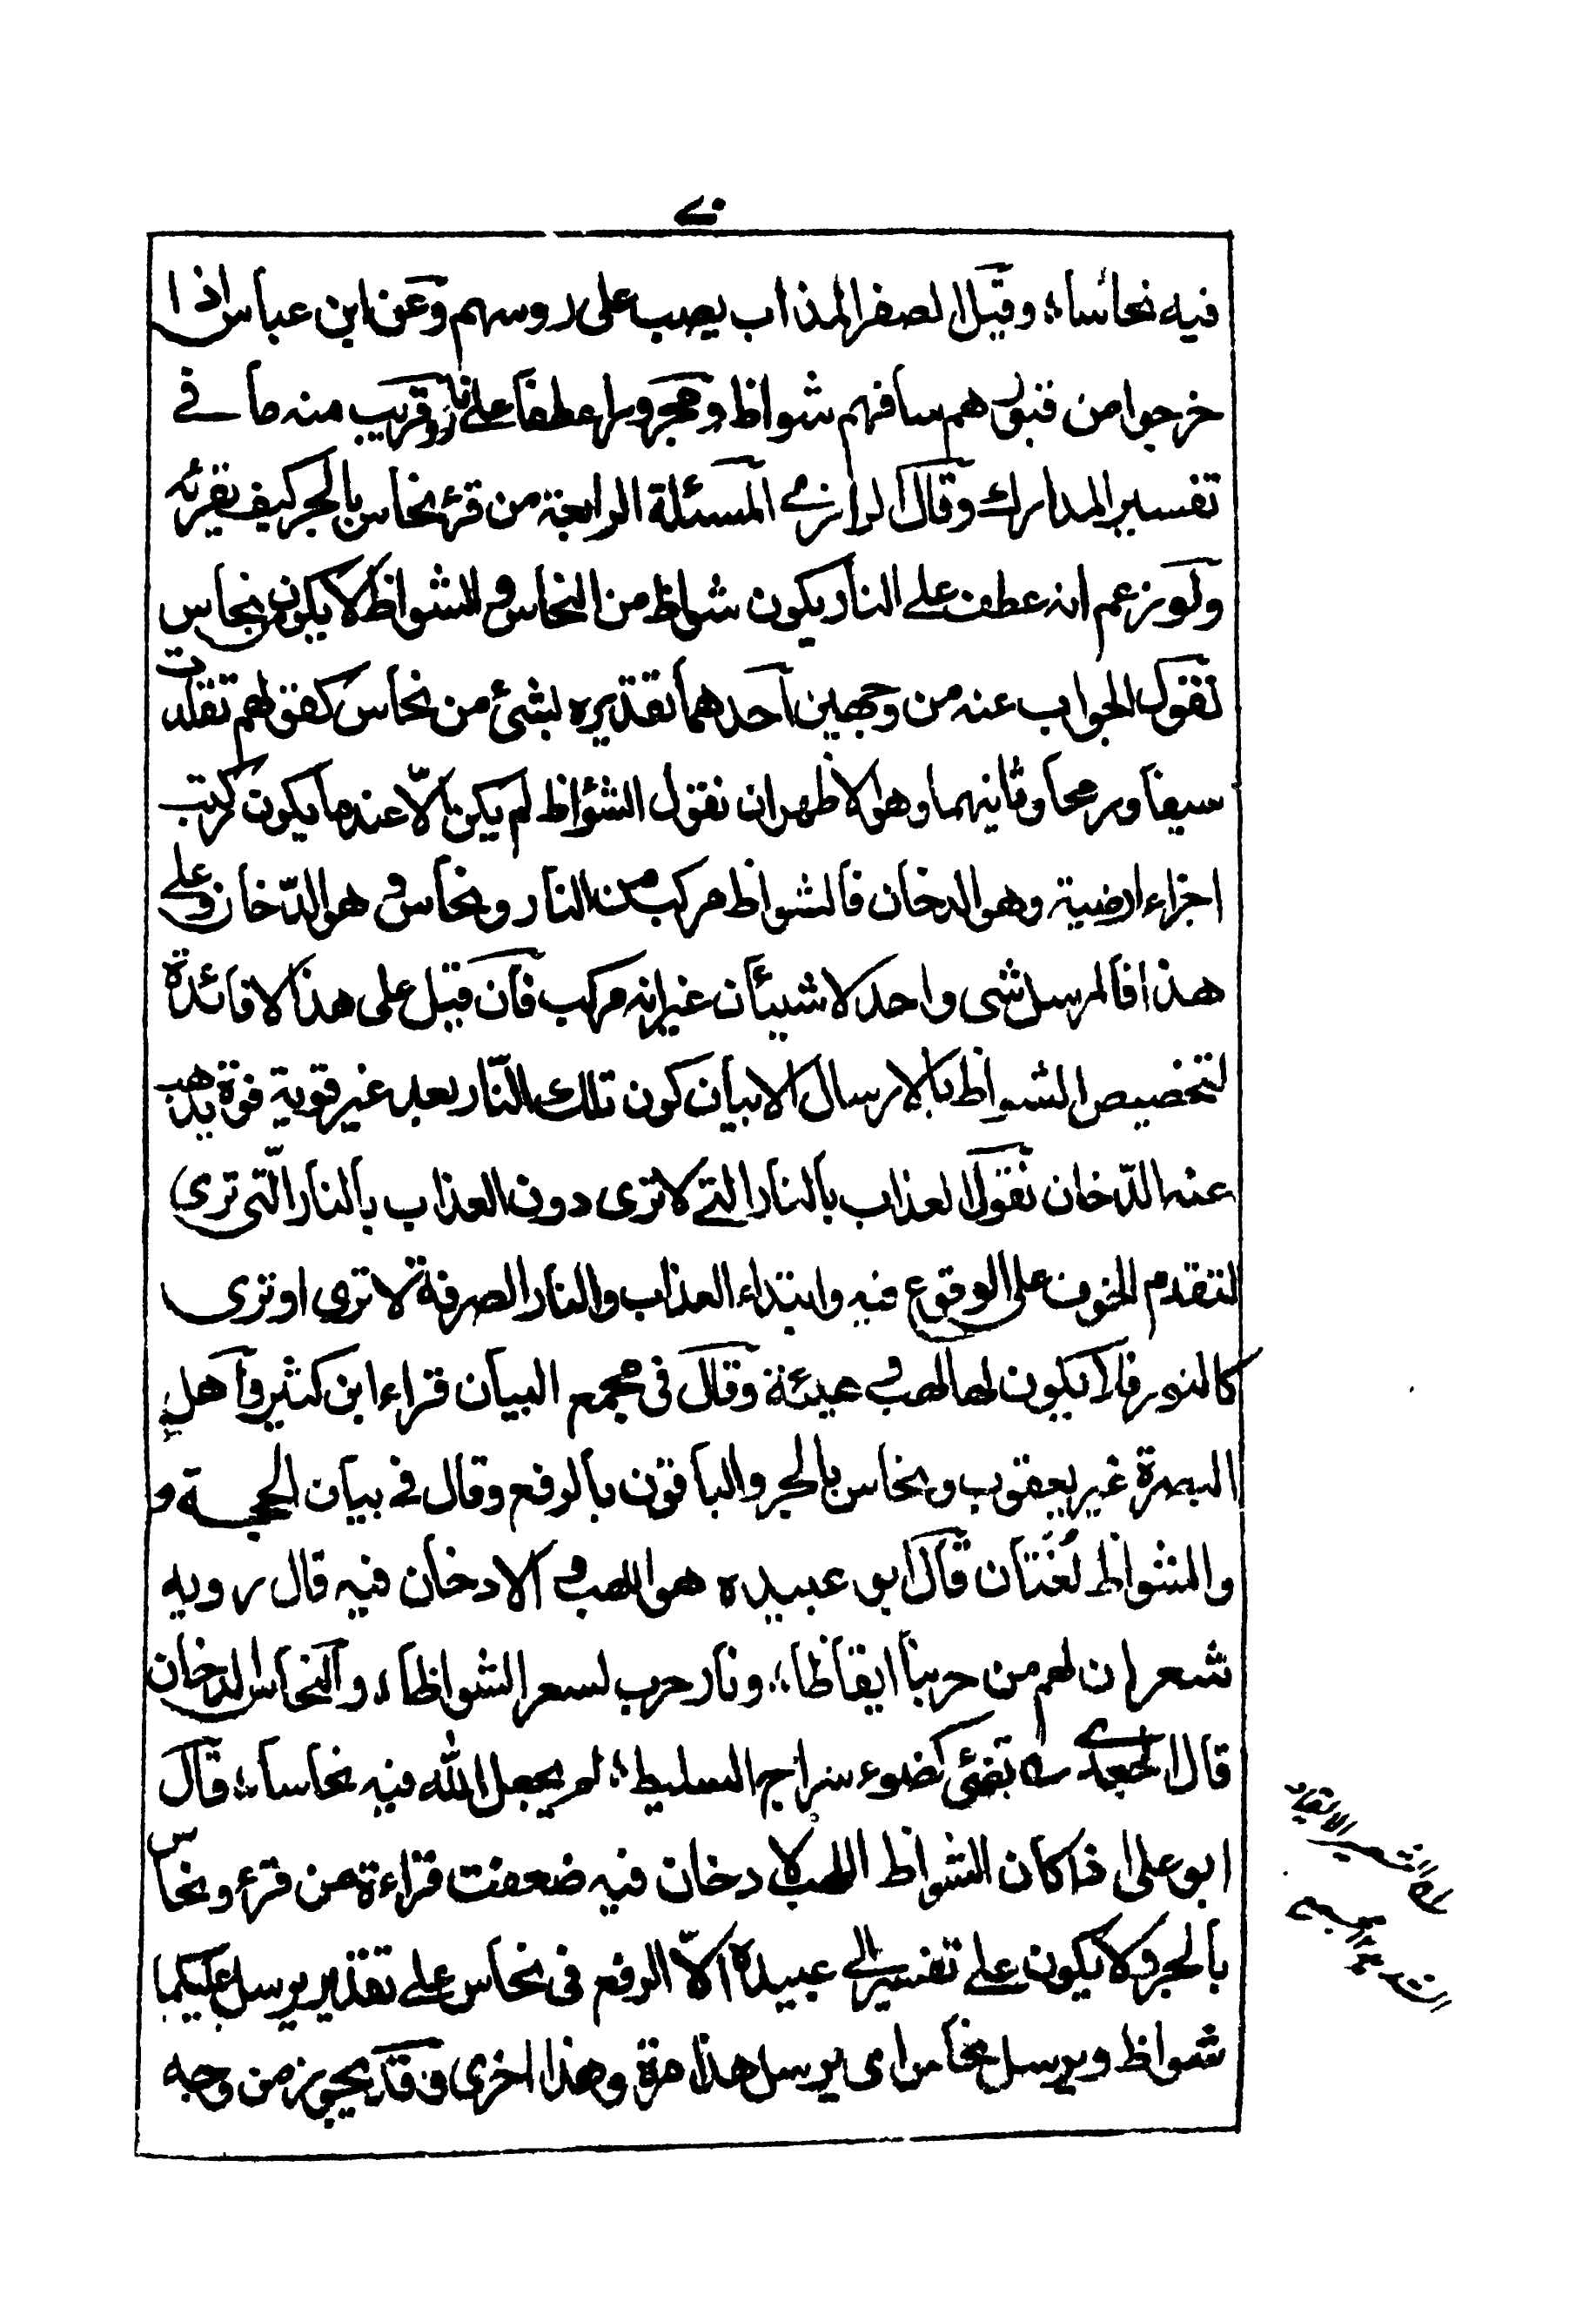 فيه نحاسا؛ وقيل الصفر المذاب يصب على روسهم وعن ابن عباس اذا
خرجوا من قبورهم ساقهم شواظ ومجرورا عطفا على نار وقريب منه ما في
تفسير المدارك وقال الرازي المسئلة الرابعة من قرء نحاس بالجر كيف يقرئه
ولو زعم انه عطف على النار يكون شواظ من النحاس والشواظ لا يكون بنحاس
نقول الجواب عنه من وجهين احدهما تقديره بشئ من نحاس كقولهم تقلدت
سيفا ورمحا وثانيهما وهو الاظهر ان نقول الشؤاظ لم يكن الّا عند ما يكون كرتب
اجزاء ارضية وهو الدخان فالشواظ مركب من النار ونحاس وهو الدّخان وعلى
هذا فالمرسل شى واحد لا شيئان غير انه مركب فان قيل على هذا لا فائدة
لتخصيص الشواظ بالارسال الا بيان كون تلك النّار بعد غير قوية قوة يذهب
عنه الدّخان نقول العذاب بالنار التي لا ترى دون العذاب بالنار الّتى ترى
لتقدم الخوف على الوقوع فيه وابتداء العذاب والنار الصرفة لا ترى او ترى
كالنور فلا يكون لها لهب وهيئة وقال فى مجمع البيان قراء ابن كثير واهل
البصرة غير يعقوب ونحاس بالجر والباقون بالرفع وقال في بيان الحجة و
والشواظ لغتان قال ابو عبيده هو اللهب و الا دخان فيه قال رويه
شعر ان لهم من حربنا ايقاظا؛ ونار حرب لسعر الشواظا، والنحاس الدخان
قال الجعدى ے تضئى كضوء سراج السليط؛ لم يجعل الله فيه نحاسا؛ قال
ابو على اذا كان الشواظ اللهب لا دخان فيه ضعفت قراءة من قرء ونحاس
بالجر ولا يكون على تفسير ابى عبيدة الّا الرفع فى نحاس على تقدير يرسل عليكما
شواظ ويرسل نحاس اى يرسل هذا مرة وهذا اخرى و قد يجوز من وجه